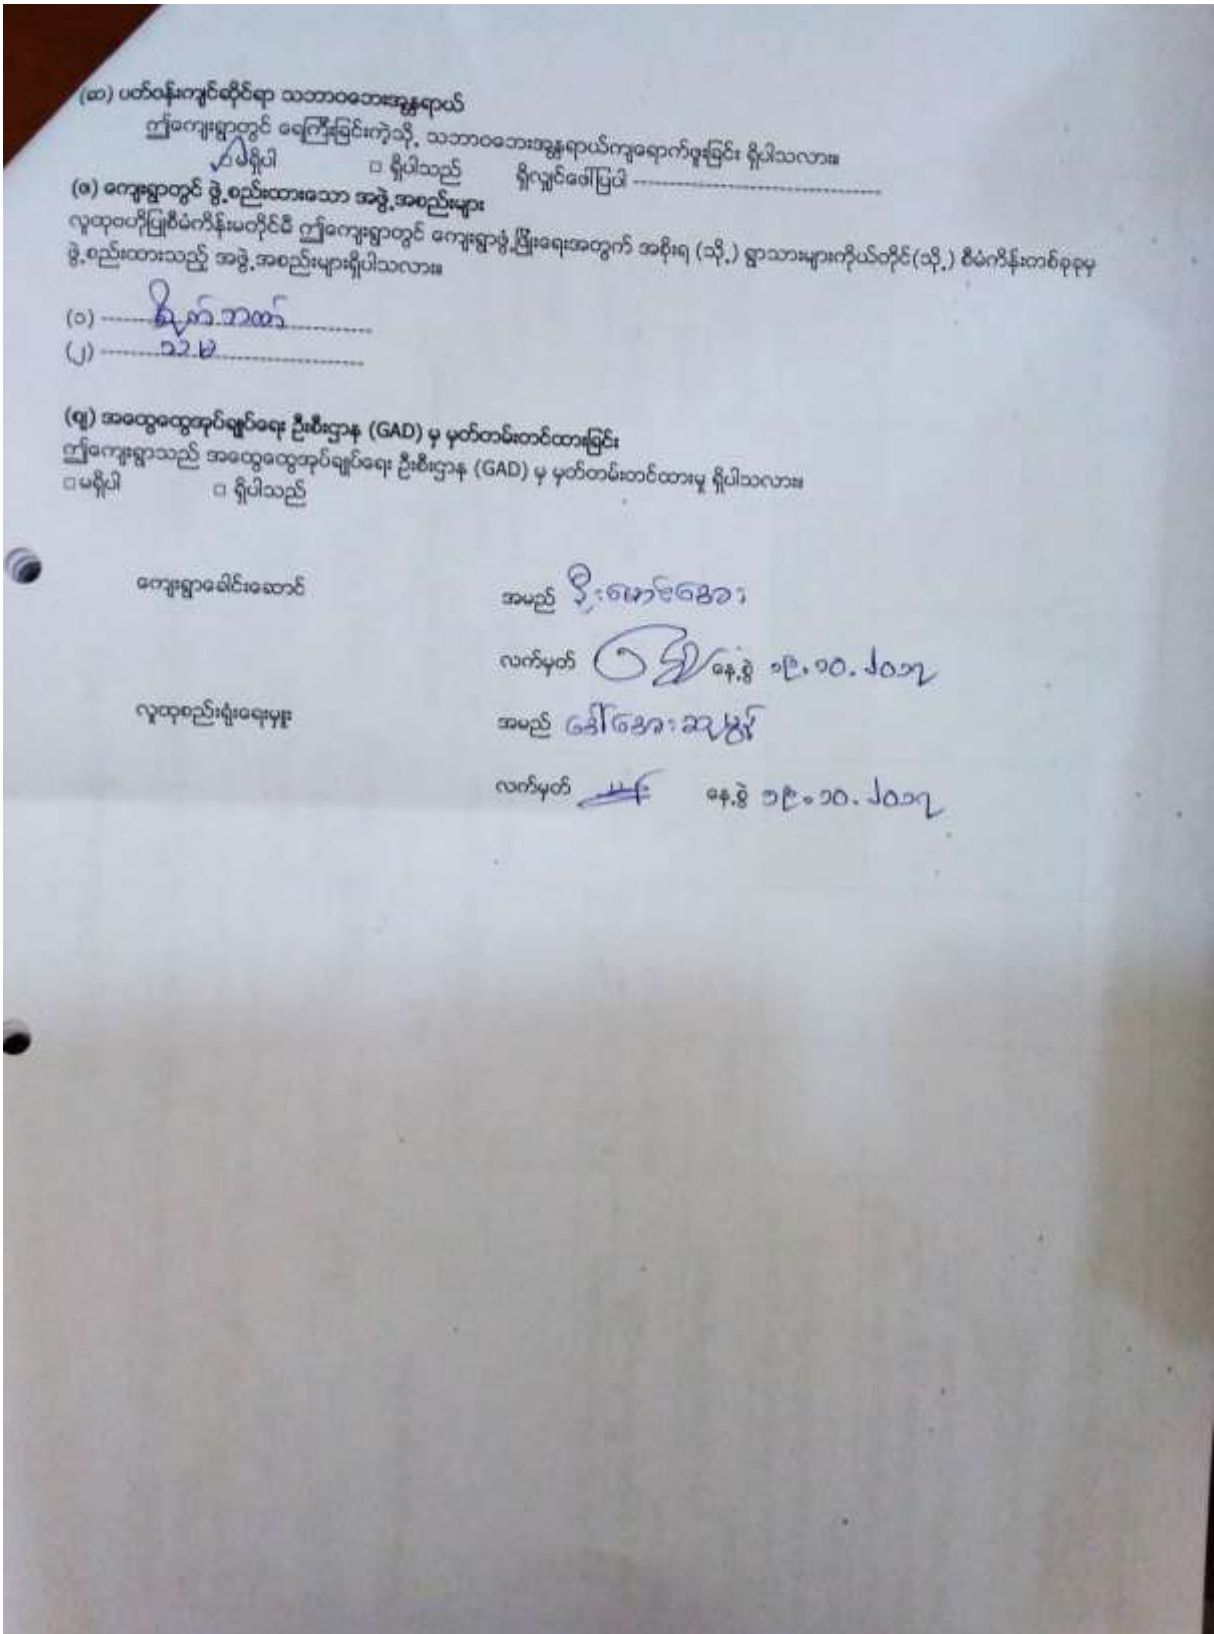 (ဆ) ပတ်ဝန်းကျင်ဆိုင်ရာ သဘာဝဘေးအန္တရာယ်
ဤကျေးရွာတွင် ရေကြီးခြင်းကဲ့သို့ သဘာဝဘေးအန္တရာယ်ကျရောက်ဖူးခြင်း ရှိပါသလား။
□ မရှိပါ □ ရှိပါသည် ရှိလျှင်ဖေါ်ပြပါ ------------------------------
(ဇ) ကျေးရွာတွင် ဖွဲ့စည်းထားသော အဖွဲ့အစည်းများ
လူထုဗဟိုပြုစီမံကိန်းမတိုင်မီ ဤကျေးရွာတွင် ကျေးရွာဖွံ့ဖြိုးရေးအတွက် အစိုးရ (သို့) ရွာသားများကိုယ်တိုင်(သို့) စီမံကိန်းတစ်ခုခုမှ
ဖွဲ့စည်းထားသည့် အဖွဲ့အစည်းများရှိပါသလား။
(၁) ------ ဘဏ် ------
(၂) ------------
(ဈ) အထွေထွေအုပ်ချုပ်ရေး ဦးစီးဌာန (GAD) မှ မှတ်တမ်းတင်ထားခြင်း
ဤကျေးရွာသည် အထွေထွေအုပ်ချုပ်ရေး ဦးစီးဌာန (GAD) မှ မှတ်တမ်းတင်ထားမှု ရှိပါသလား။
□ မရှိပါ □ ရှိပါသည်
ကျေးရွာခေါင်းဆောင် အမည် ဦးမောင်အေး
လက်မှတ် နေ့စွဲ ၁၉.၁၀.၂၀၁၇
လူထုစည်းရုံးရေးမှူး အမည် ဒေါ်အေးဆုမွန်
လက်မှတ် နေ့စွဲ ၁၉.၁၀.၂၀၁၇